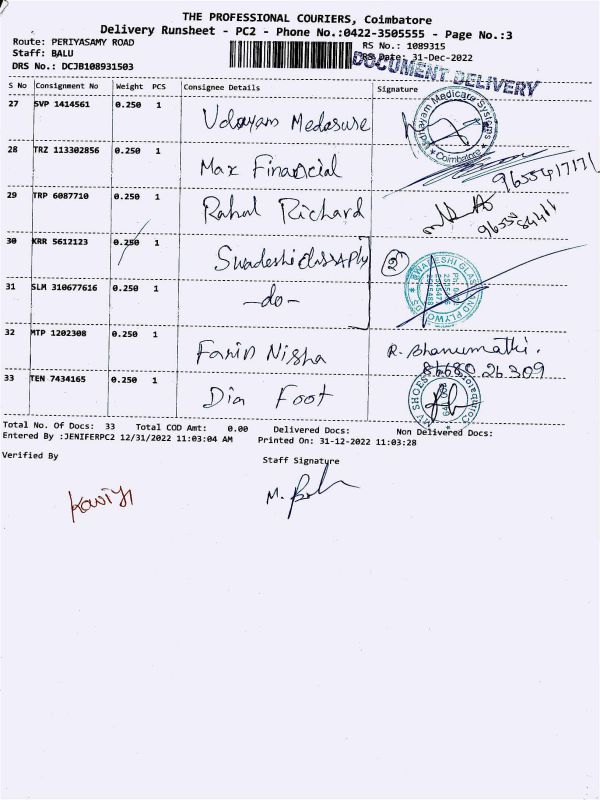 THE PROFESSIONAL COURIERS, Coimbatore
Delivery Runsheet - PC2 - Phone No.:0422-3505555 - Page No.:3
Route: PERIYASAMY ROAD
RS No.: 1089315
Staff: BALU
RS Date: 31-Dec-2022
DRS No.: DCJB108931503
DOCUMENT DELIVERY
S No Consignment No Weight PCS Consignee Details Signature
27 SVP 1414561 0.250 1 Udayam Medasure
Udayam Medicare Systems * Coimbatore *
28 TRZ 113302856 0.250 1 Max Financial
29 TRP 6087710 0.250 1 Rahul Richard
30 KRR 5612123 0.250 1 Swadeshi Glass & Ply 2
31 SLM 310677616 0.250 1 -do-
SWADESHI GLASS AND PLYWOODS
32 MTP 1202308 0.250 1 Farin Nisha R. Bhanumathi.
86680 26309
33 TEN 7434165 0.250 1 Dia Foot
MV SHOES Coimbatore
Total No. Of Docs: 33 Total COD Amt: 0.00 Delivered Docs: Non Delivered Docs:
Entered By :JENIFERPC2 12/31/2022 11:03:04 AM Printed On: 31-12-2022 11:03:28
Verified By
Staff Signature